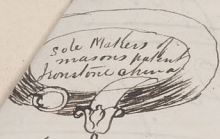 Sole Makers
masons patent
Ironstone china